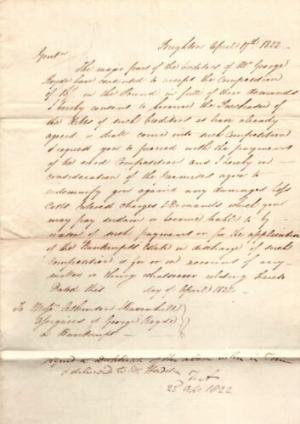 Brighton April 17th 1822
Gentn
The major part of the creditors of Mr George
Hoyde have consented to accept the composition
of in the Pound in full of their demands
I hereby consent to become the Purchaser of
the Debts of such Creditors as have already
agreed or shall come into such Composition
I request you to proceed with the payment
of the said Composition and I hereby in
consideration of the agree to
indemnify you against any damages Loss
Costs Interest charges & Demands which you
may pay sustain or become liable to by
reason of such payment or for the application
of the Bankrupts Estate in discharge of such
Composition or for or on account of any
matter or thing whatsoever relating thereto
Dated this day of April 1822
To Messrs
Assignees of George Hoyde
a Bankrupt
signed a Duplicate of the above when in Town
& delivered to Mr
25 Apl. 1822